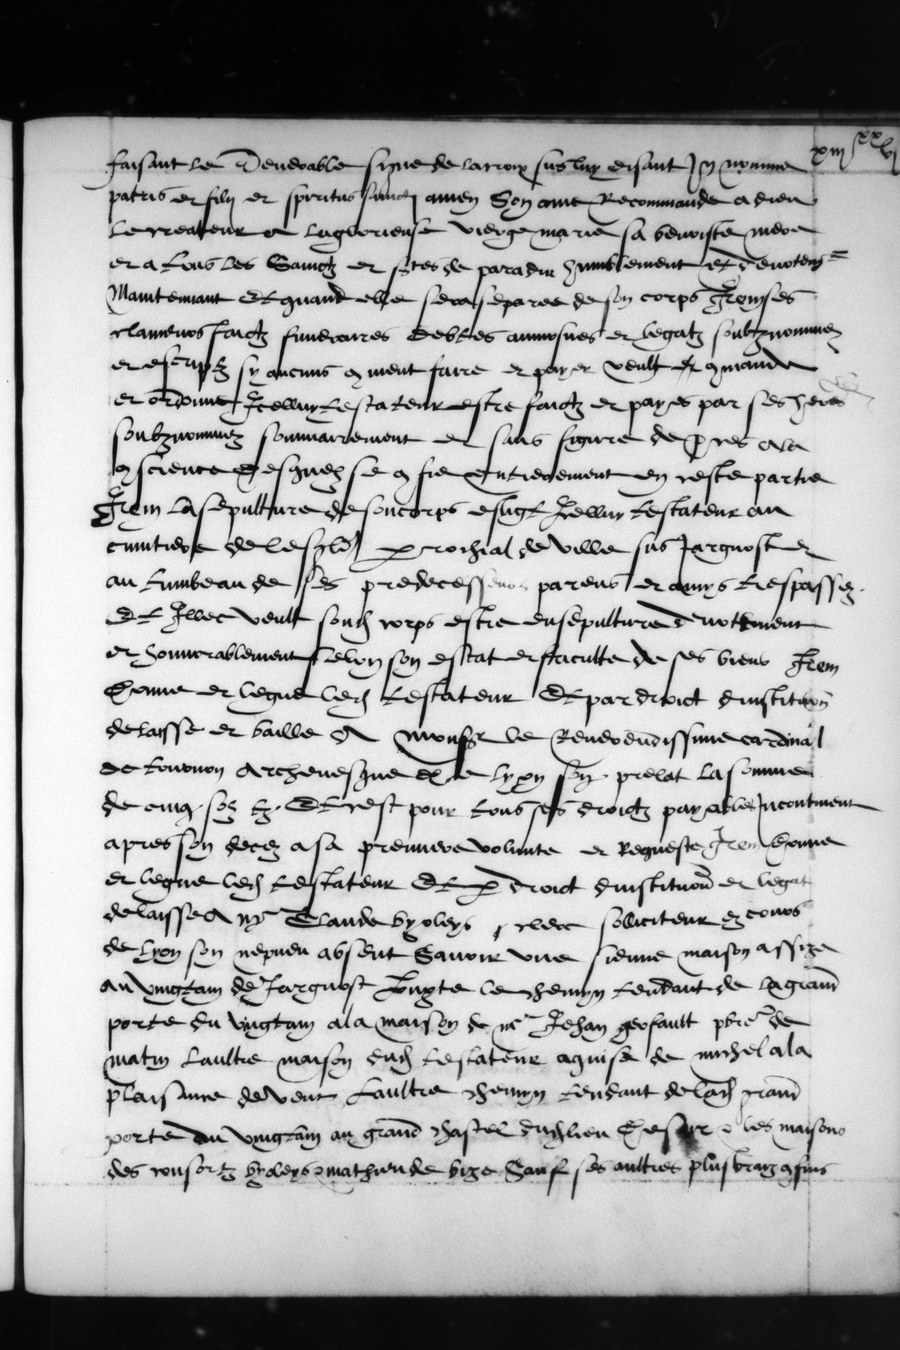 xiij xx vj
faisant le venerable signe de la croix sus luy disant In nomine
patris et filij et spiritus sancti amen Son ame Recommande a dieu
le createur a la glorieuse vierge marie sa benoiste mere
et a tous les Sainctz et sctes de paradis humblement et devotemt
Maintenant Et quand elle sera separee de son corps Item ses
clameurs faictz funeraires debtes aumosnes et legatz soubznommez
et escriptz sy aucuns comment faire et payer veult et commande
et ordonne Icelluy testateur estre faictz et payes par ses heres
soubznommez sommairement et sans figure de proces a la
conscience desquelz se confie entierement en ceste partie
Item la sepulture de son corps eslit Icelluy testateur au
cimitiere de lesglise parrochial de ville sus Jarnost et
au tumbeau de ses predecesseurs parens et amys trespassez
Et Illec veult sond corps estre ensepulture devotement
et honnorablement selon son estat et faculte de ses biens Item
donne et legue led testateur Et par droict dinstitution
delaisse et baille A Monsgr le Reverendissime cardinal
de tournon Archevesque de lyon son prelat la somme
de cinq solz tz Et cest pour tous ses droictz payables Incontinent
apres son deces a sa premiere volunte et Requeste Item donne
et legue led testateur Et par droict dinstitution et legat
delaisse A me Claude byoleys clerc solliciteur ez cours
de Lyon son nepveu absent Savoir une sienne maison assize
au vingtain de Jarnost Jouxte le chemyn tendant de la grand
porte du vingtain a la maison de me Jehan geofault pbre de
matin laultre maison dud testateur acquise de michel a la
plaisance de vent laultre chemyn tendant de lad grand
porte du vingtain au grand chastel dud lieu de soir & les maisons
des consortz byoleys & mathieu de bize Sauf ses aultres plus vrays confins